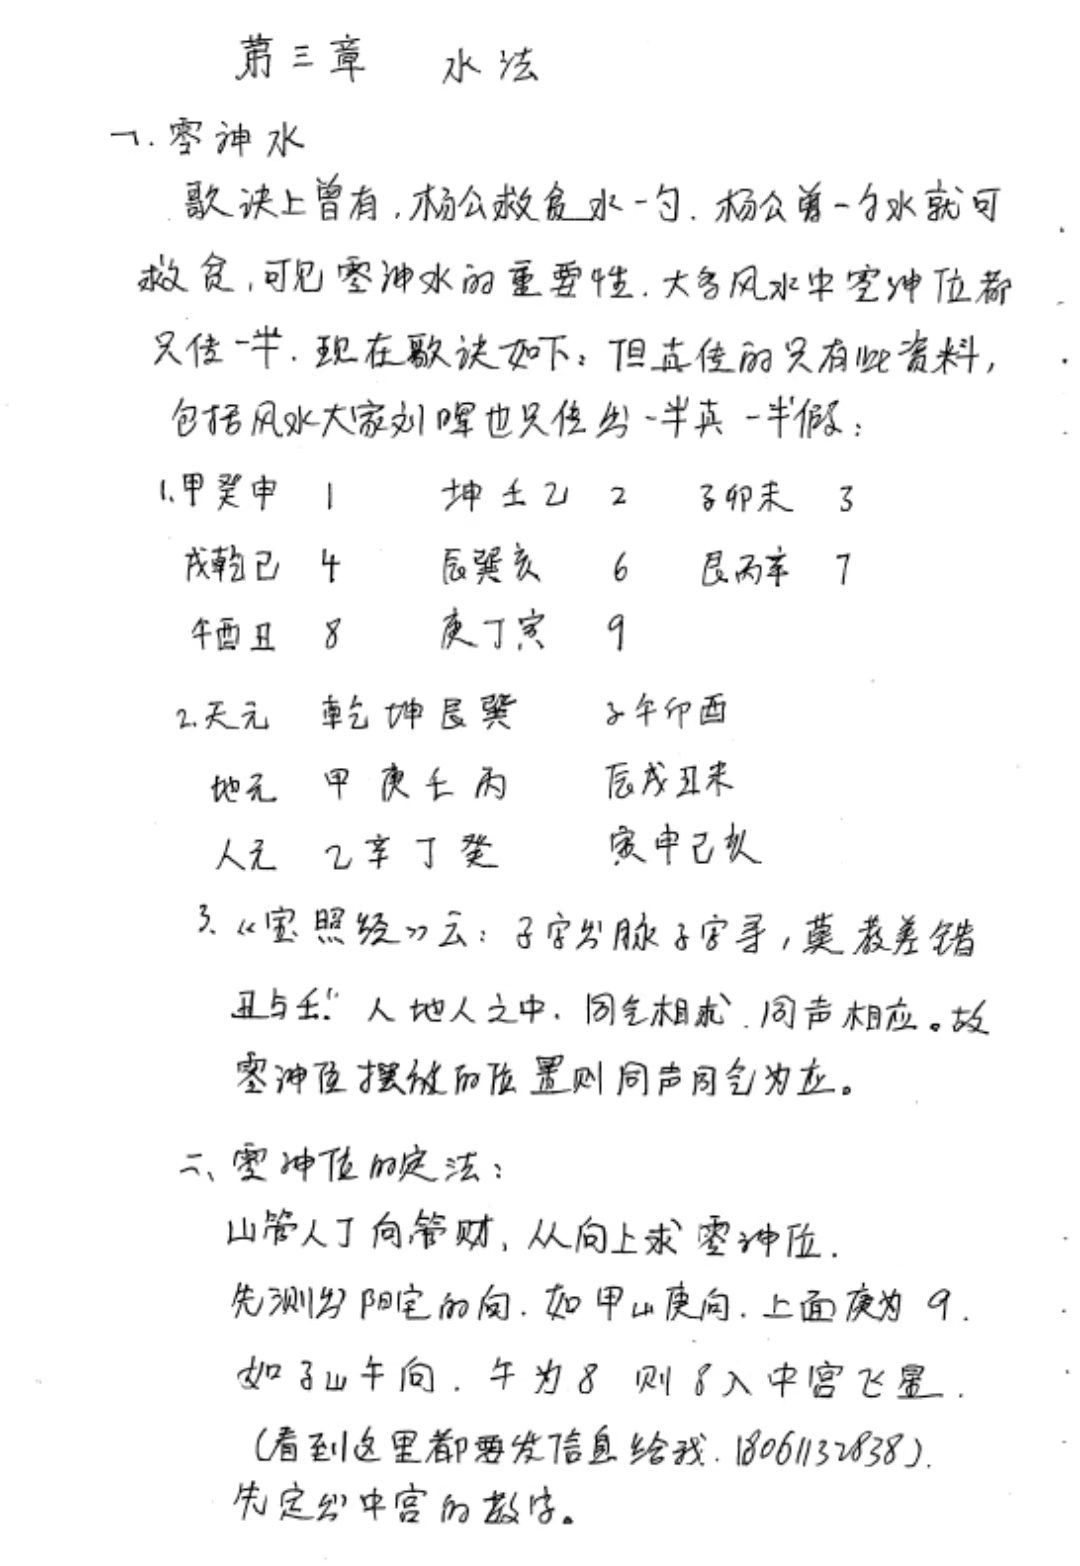 第三章 水法
一.零神水
歌诀上曾有,杨公救贫水一勺.杨公曾一勺水就可
救贫,可见零神水的重要性.大多风水中零神位都
只传一半.现在歌诀如下:但真传的只有此资料,
包括风水大家刘晖也只传出一半真一半假:
1.甲癸申 1 坤壬乙 2 子卯未 3
戌乾己 4 辰巽亥 6 艮丙辛 7
午酉丑 8 庚丁寅 9
2.天元 乾坤艮巽 子午卯酉
地元 甲庚壬丙 辰戌丑未
人元 乙辛丁癸 寅申己亥
3.《宝照经》云:子字出脉子字寻,莫教差错
丑与壬!"人地人之中.同气相求.同声相应。故
零神位摆放的位置则同声同气为应。
二、零神位的定法:
山管人丁向管财,从向上求零神位.
先测出阳宅的向.如甲山庚向.上面庚为9.
如子山午向.午为8 则8入中宫飞星.
(看到这里都要发信息给我.18061132838).
先定出中宫的数字。